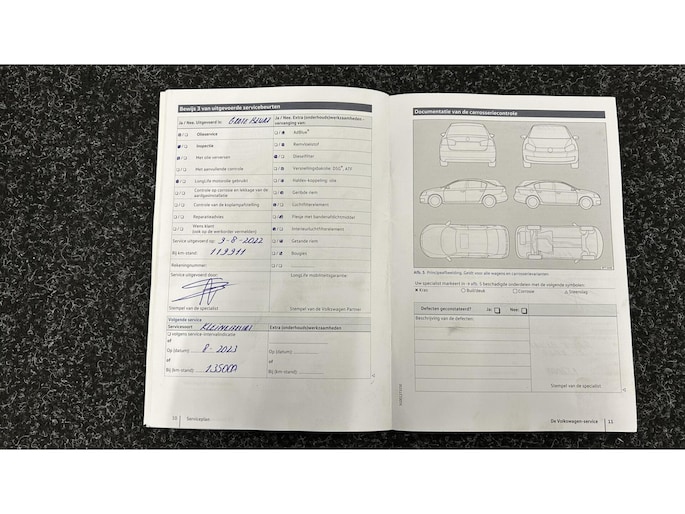 Bewijs 3 van uitgevoerde servicebeurten
Ja / Nee, Uitgevoerd is: GROTE BEURT
Olieservice
Inspectie
Met olie verversen
Met aanvullende controle
LongLife motorolie gebruikt
Controle op conditie en lekkage van de
aardgasinstallatie
Controle van de koplampafstelling
Reparatieadvies
Wens klant
(ook op de werkorder vermelden)
Service uitgevoerd op: 3-8-2022
Bij km-stand: 113911
Rekeningnummer:
Service uitgevoerd door:
Stempel van de specialist
Ja / Nee, Extra (onderhouds)werkzaamheden -
vervanging van:
AdBlue®
Remvloeistof
Dieselfilter
Versnellingsbakolie: DSG®, ATF
Haldex-koppeling: olie
Geribde riem
Luchtfilterelement
Flesje met bandenafdichtmiddel
Interieurluchtfilterelement
Getande riem
Bougies
LongLife mobiliteitsgarantie
Stempel van de Volkswagen Partner
Volgende service
Servicesoort KLEINE BEURT
volgens service-intervalindicatie
of
Op (datum): 8-2023
of
Bij (km-stand): 135000
Extra (onderhouds)werkzaamheden
Op (datum):
of
Bij (km-stand):
10 Serviceplan
Documentatie van de carrosseriecontrole
Afb. 5 Principeafbeelding. Geldt voor alle wagens en carrosserievarianten.
Uw specialist markeert in → afb. 5 beschadigde onderdelen met de volgende symbolen:
× Kras ○ Buil/deuk □ Corrosie ◇ Steenslag
Defecten geconstateerd? Ja: Nee:
Beschrijving van de defecten:
Stempel van de specialist
De Volkswagen-service 11